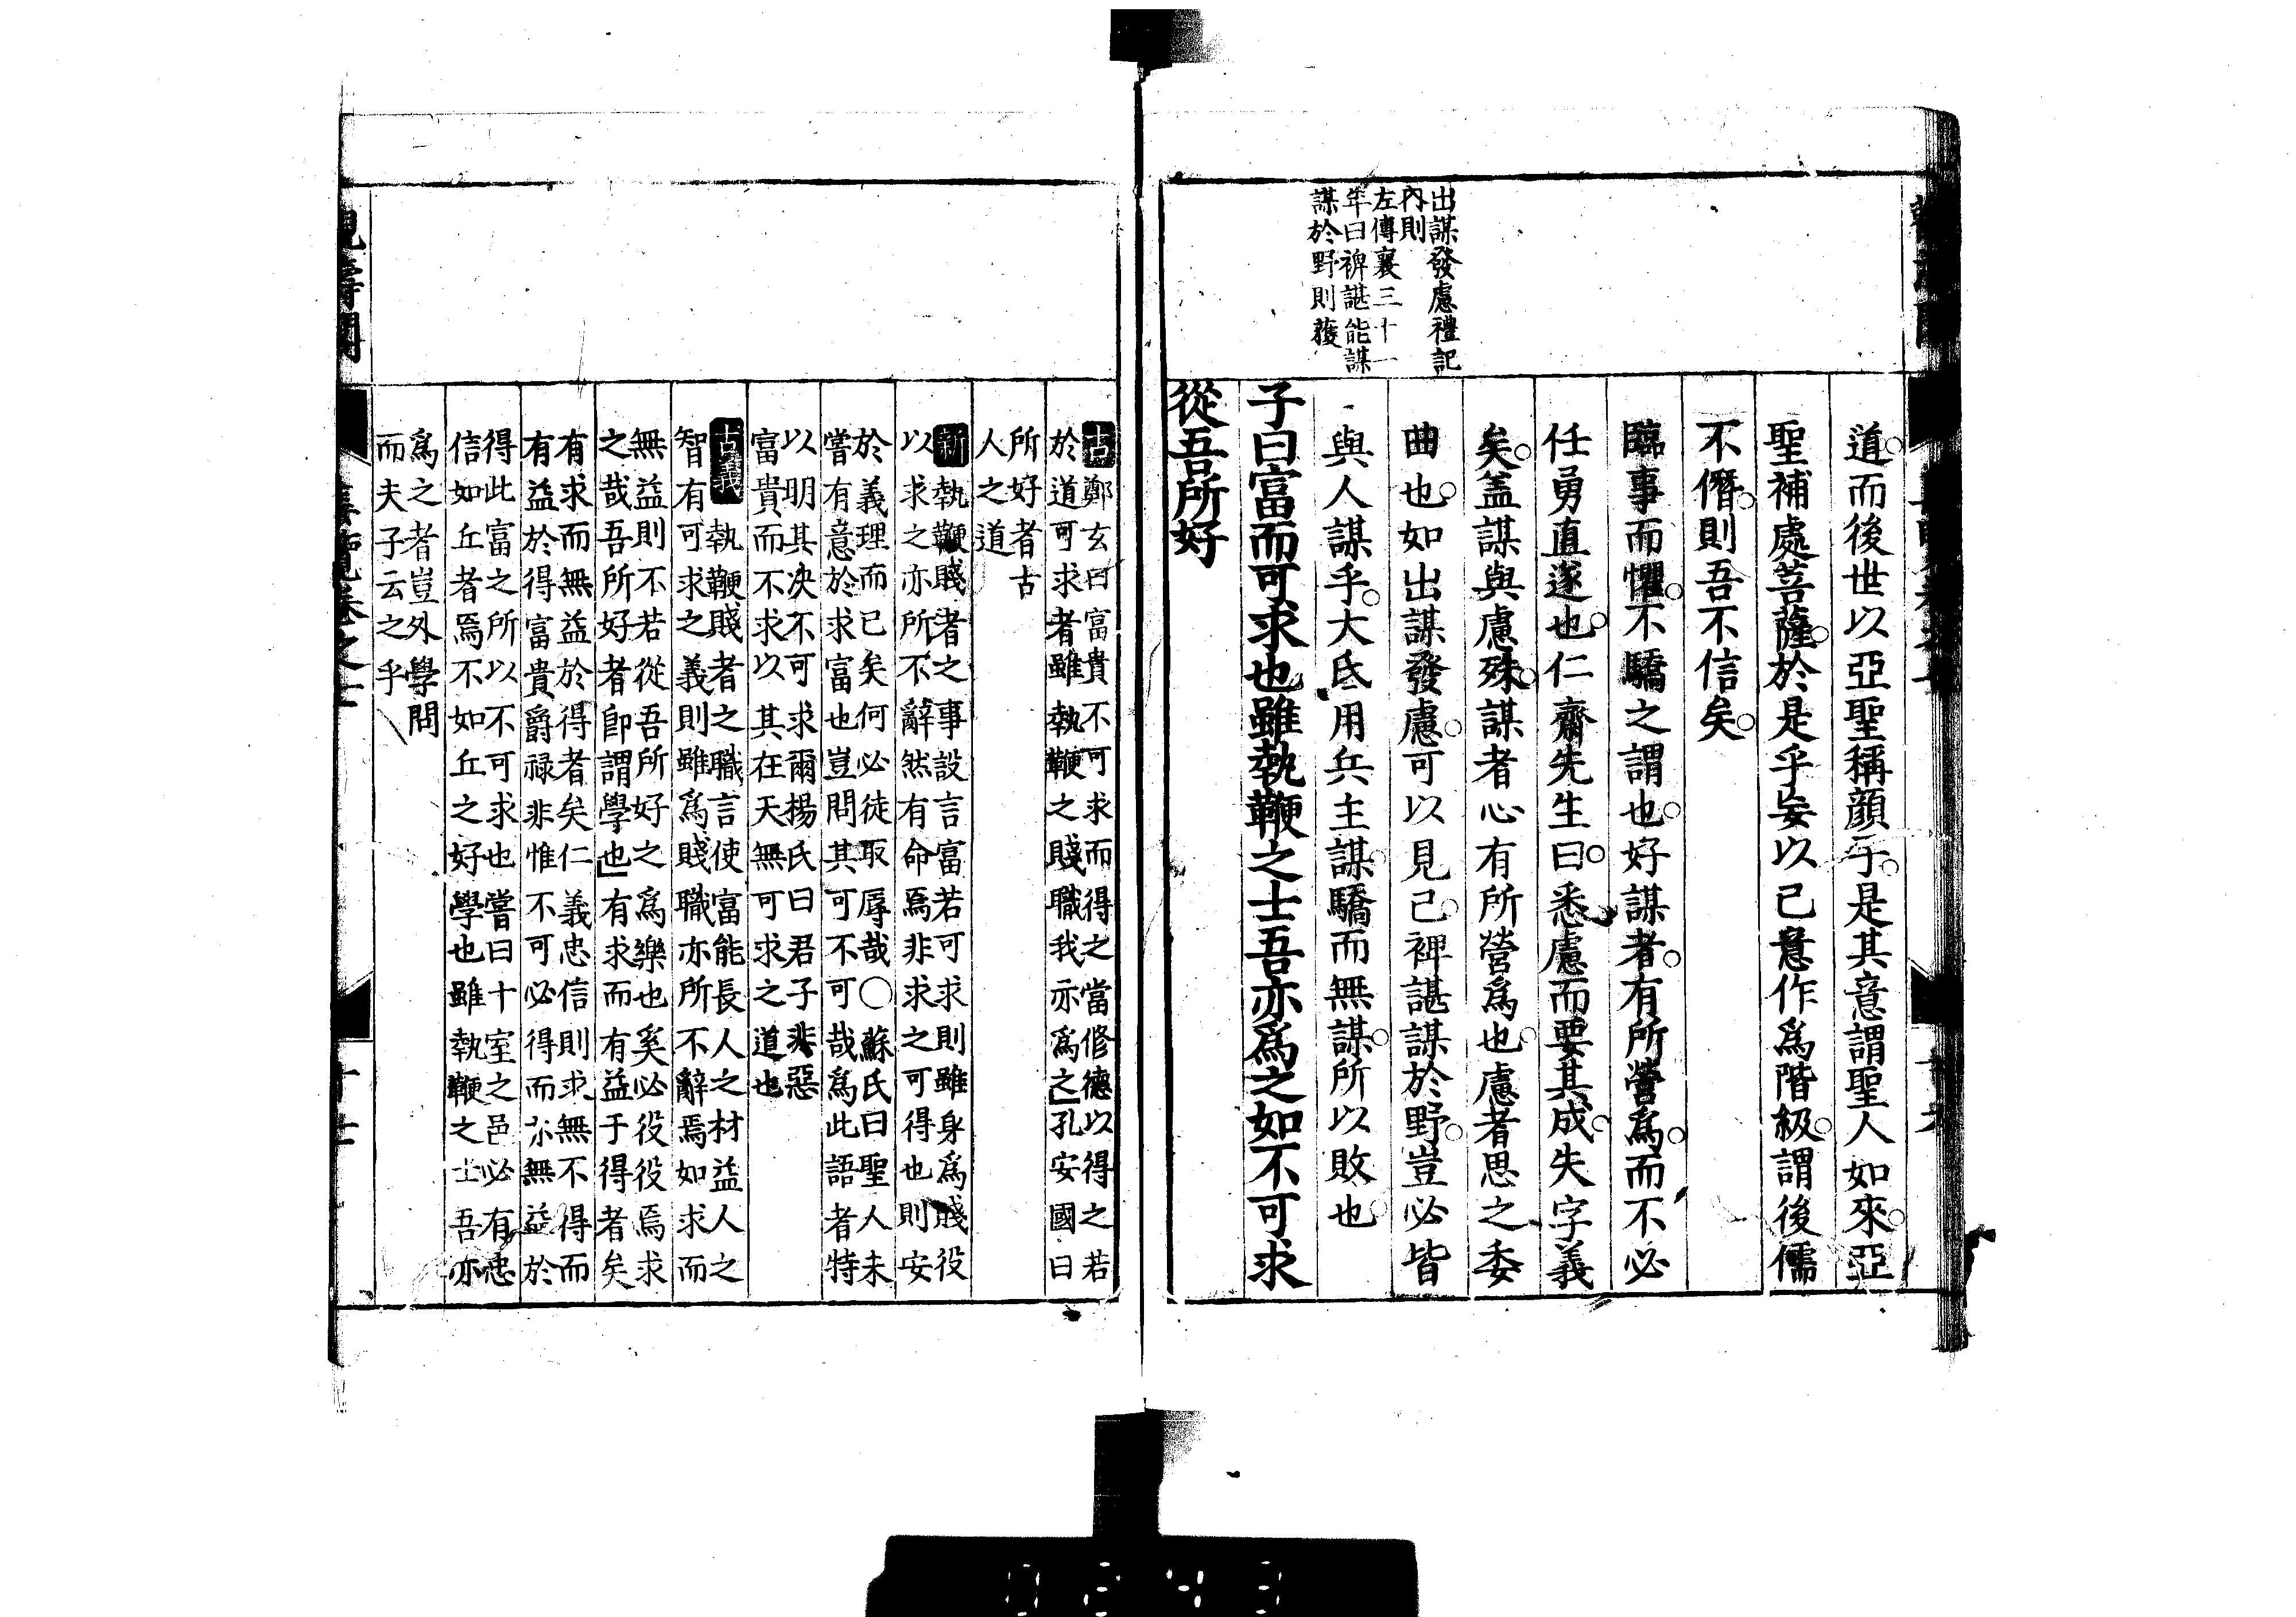 出謀發慮禮記
內則
左傳襄三十一
年曰裨諶能謀
謀於野則獲
道而後世以亞聖稱顏子是其意謂聖人如來亞
聖補處菩薩於是乎妄以己意作爲階級謂後儒
不僭則吾不信矣
臨事而懼不驕之謂也好謀者有所營爲而不必
任勇直遂也仁齋先生曰悉慮而要其成失字義
矣蓋謀與慮殊謀者心有所營爲也慮者思之委
曲也如出謀發慮可以見已裨諶謀於野豈必皆
與人謀乎大氐用兵主謀驕而無謀所以敗也
子曰富而可求也雖執鞭之士吾亦爲之如不可求
從吾所好
古鄭玄曰富貴不可求而得之當修德以得之若
於道可求者雖執鞭之賤職我亦爲之孔安國曰
所好者古
人之道
新執鞭賤者之事設言富若可求則雖身爲賤役
以求之亦所不辭然有命焉非求之可得也則安
於義理而已矣何必徒取辱哉○蘇氏曰聖人未
嘗有意於求富也豈問其可不可哉爲此語者特
以明其决不可求爾揚氏曰君子非惡
富貴而不求以其在天無可求之道也
古義執鞭賤者之職言使富能長人之材益人之
智有可求之義則雖爲賤職亦所不辭焉如求而
無益則不若從吾所好之爲樂也奚必役役焉求
之哉吾所好者卽謂學也有求而有益于得者矣
有求而無益於得者矣仁義忠信則求無不得而
有益於得富貴爵祿非惟不可必得而亦無益於
得此富之所以不可求也嘗曰十室之邑必有忠
信如丘者焉不如丘之好學也雖執鞭之士吾亦
爲之者豈外學問
而夫子云之乎